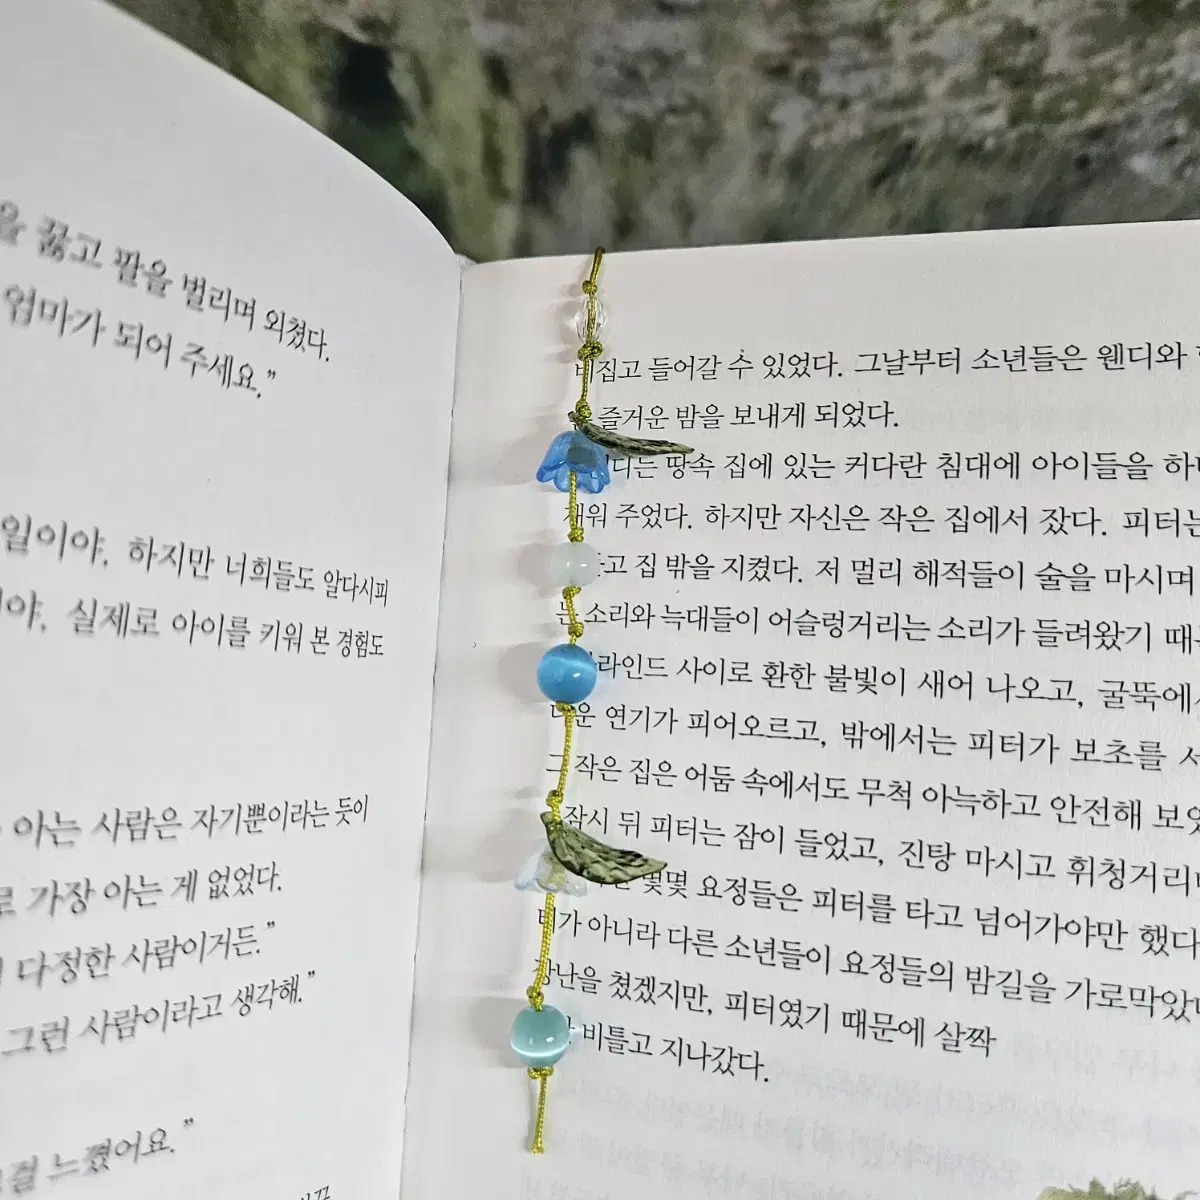 꿇고 팔을 벌리며 외쳤다.
엄마가 되어 주세요.”
일이야, 하지만 너희들도 알다시피
실제로 아이를 키워 본 경험도
아는 사람은 자기뿐이라는 듯이
가장 아는 게 없었다.
다정한 사람이거든.”
그런 사람이라고 생각해.”
느꼈어요.”
비집고 들어갈 수 있었다. 그날부터 소년들은 웬디와
즐거운 밤을 보내게 되었다.
땅속 집에 있는 커다란 침대에 아이들을
재워 주었다. 하지만 자신은 작은 집에서 잤다. 피터는
집 밖을 지켰다. 저 멀리 해적들이 술을 마시며
소리와 늑대들이 어슬렁거리는 소리가 들려왔기
사이로 환한 불빛이 새어 나오고, 굴뚝에서
연기가 피어오르고, 밖에서는 피터가 보초를
그 작은 집은 어둠 속에서도 무척 아늑하고 안전해
잠시 뒤 피터는 잠이 들었고, 진탕 마시고
몇몇 요정들은 피터를 타고 넘어가야만 했다
아니라 다른 소년들이 요정들의 밤길을
장난을 쳤겠지만, 피터였기 때문에 살짝
비틀고 지나갔다.